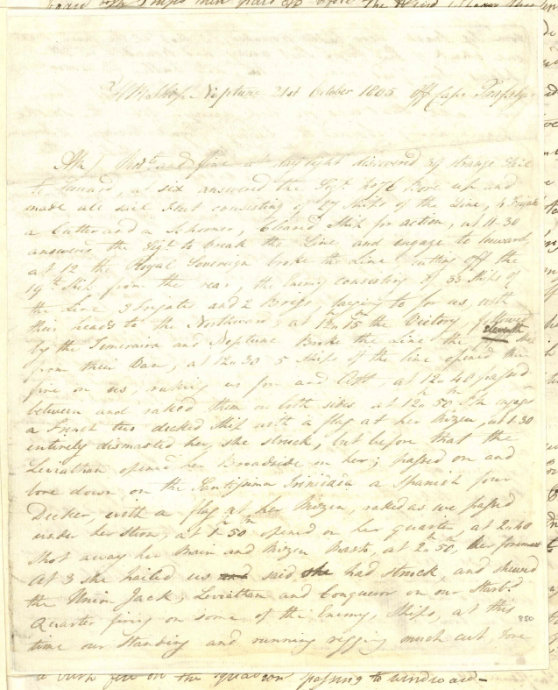 Neptune 21st October 1805 off Cape
AM fine at daylight discovered strange
to Leeward, at six answered the Bore up and
made all sail Fleet consisting of 27 Ships of the Line, 4
a Cutter and a Schooner, Cleared Ship for action, at 11.30
answered the to break the Line and engage to leeward,
at 12 the Royal Sovereign broke the Line cutting off the
19th Ship from the rear, the Enemy consisting of 33 Ships of
the Line 5 frigates and 2 Brigs, laying to for us, with
their heads to the Northward, at 12h 15m the Victory followed
by the Temeraire and Neptune Broke the Line the eleventh
from their Van, at 12h 30 5 Ships of the line opened their
fire on us, raking us fore and Aft, at 12h 40 passed
between and raked them on both sides, at 12h 52
a French two decked Ship with a flag at her Mizen, at 1.30
entirely dismasted her, she struck, but before that the
Leviathan opened her Broadside on her; passed on and
bore down on the Santisima Trinidada a Spanish four
Decker, with a flag at her Mizen, raked as we passed
under her Stern, at 1h 50m opened on her quarter, at 2h 40
Shot away her Main and Mizen Masts, at 2h 50m, her foremast
At 3 she hailed us and said she had struck, and shewed
the Union Jack; Leviathan and Conqueror on our Starbd
Quarter firing on some of the Enemy's Ships, at this
time our Standing and running rigging much cut,
a fire on the Squadron passing to windward